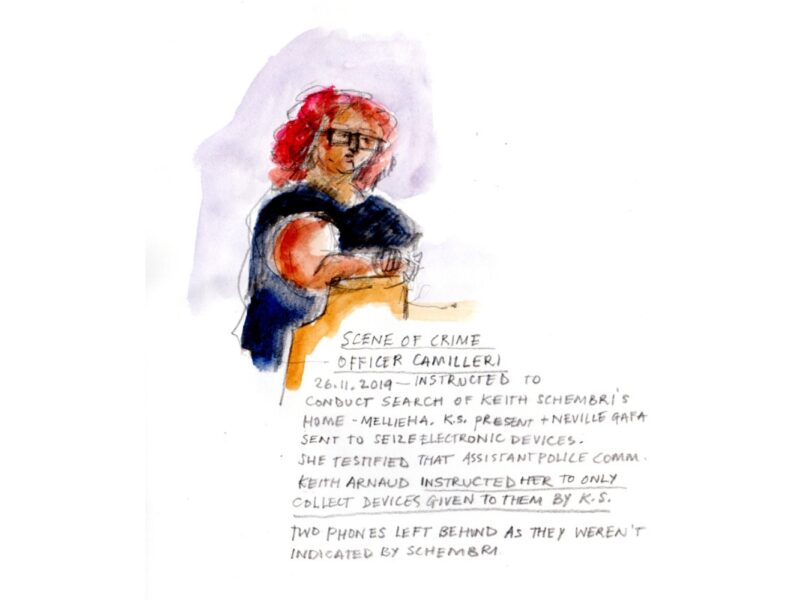 SCENE OF CRIME
OFFICER CAMILLERI
26.11.2019 — INSTRUCTED TO
CONDUCT SEARCH OF KEITH SCHEMBRI'S
HOME - MELLIEHA. K.S. PRESENT + NEVILLE GAFA
SENT TO SEIZE ELECTRONIC DEVICES.
SHE TESTIFIED THAT ASSISTANT POLICE COMM.
KEITH ARNAUD INSTRUCTED HER TO ONLY
COLLECT DEVICES GIVEN TO THEM BY K.S.
TWO PHONES LEFT BEHIND AS THEY WEREN'T
INDICATED BY SCHEMBRI